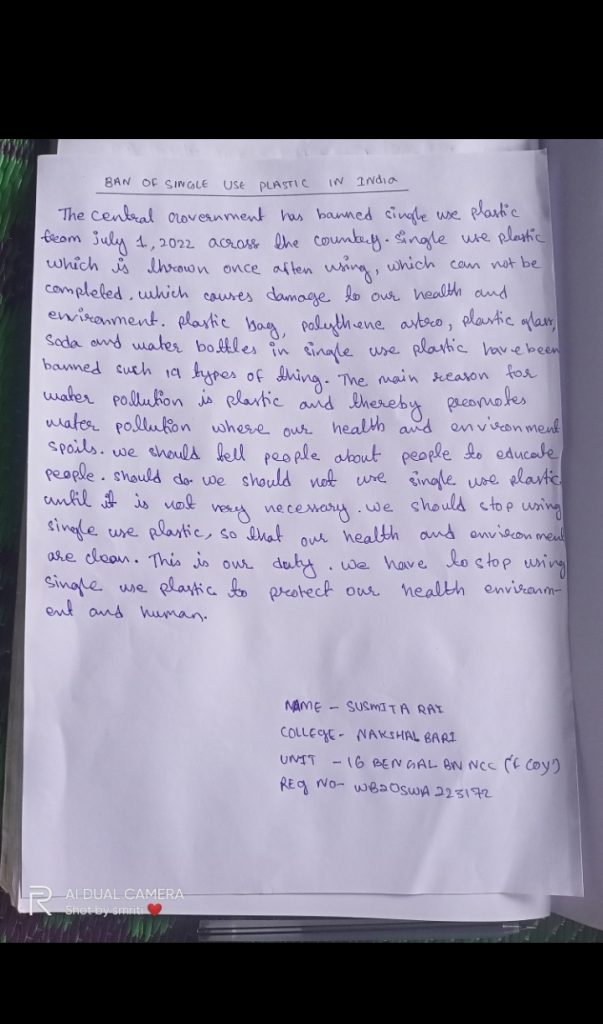 BAN OF SINGLE USE PLASTIC IN INDIA
The central Government has banned single use plastic
from july 1, 2022 across the country. Single use plastic
which is thrown once after using, which can not be
completed. which causes damage to our health and
environment. plastic bag, polythene, plastic glass,
Soda and water bottles in single use plastic have been
banned such 19 types of thing. The main reason for
water pollution is plastic and thereby promotes
water pollution where our health and environment
spoils. we should tell people about people to educate
people. should do we should not use single use plastic
until it is not very necessary. we should stop using
single use plastic, so that our health and environment
are clean. This is our duty. we have to stop using
single use plastic to protect our health environm-
ent and human.
NAME - SUSMITA RAI
COLLEGE - NAKSHAL BARI
UNIT - 16 BENGAL BN NCC ('F COY')
REg NO- WB20SWA223172
AI DUAL CAMERA
Shot by smriti